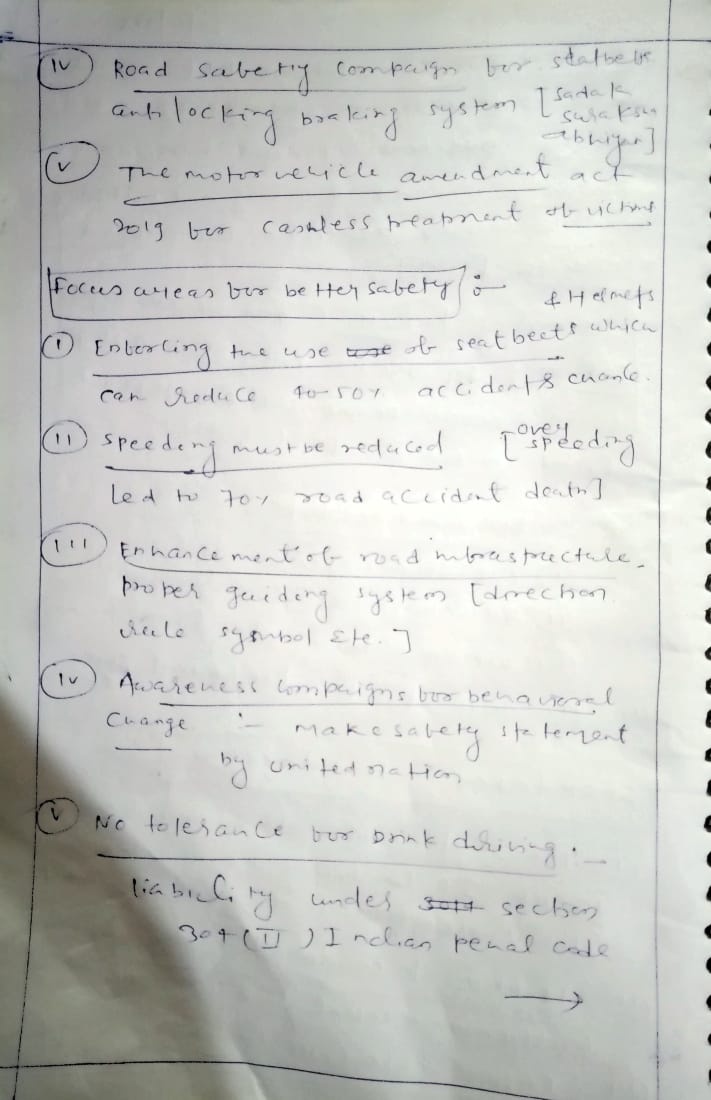 (iv) Road safety campaign for seatbelts
anti locking braking system [sadak suraksha abhiyan]
(v) The motor vehicle amendment act
2019 for cashless treatment of victims
Focus areas for better safety :-
& Helmets
(i) Enforcing the use of seatbelts which
can reduce 40-50% accidents chance.
(ii) speeding must be reduced [over speeding
led to 70% road accident death]
(iii) Enhancement of road infrastructure.
proper guiding system [direction
rule symbol etc.]
(iv) Awareness campaigns for behavioral
change :- make safety statement
by united nation
(v) No tolerance for Drink driving :-
liability under section
304 (II) Indian penal code
→